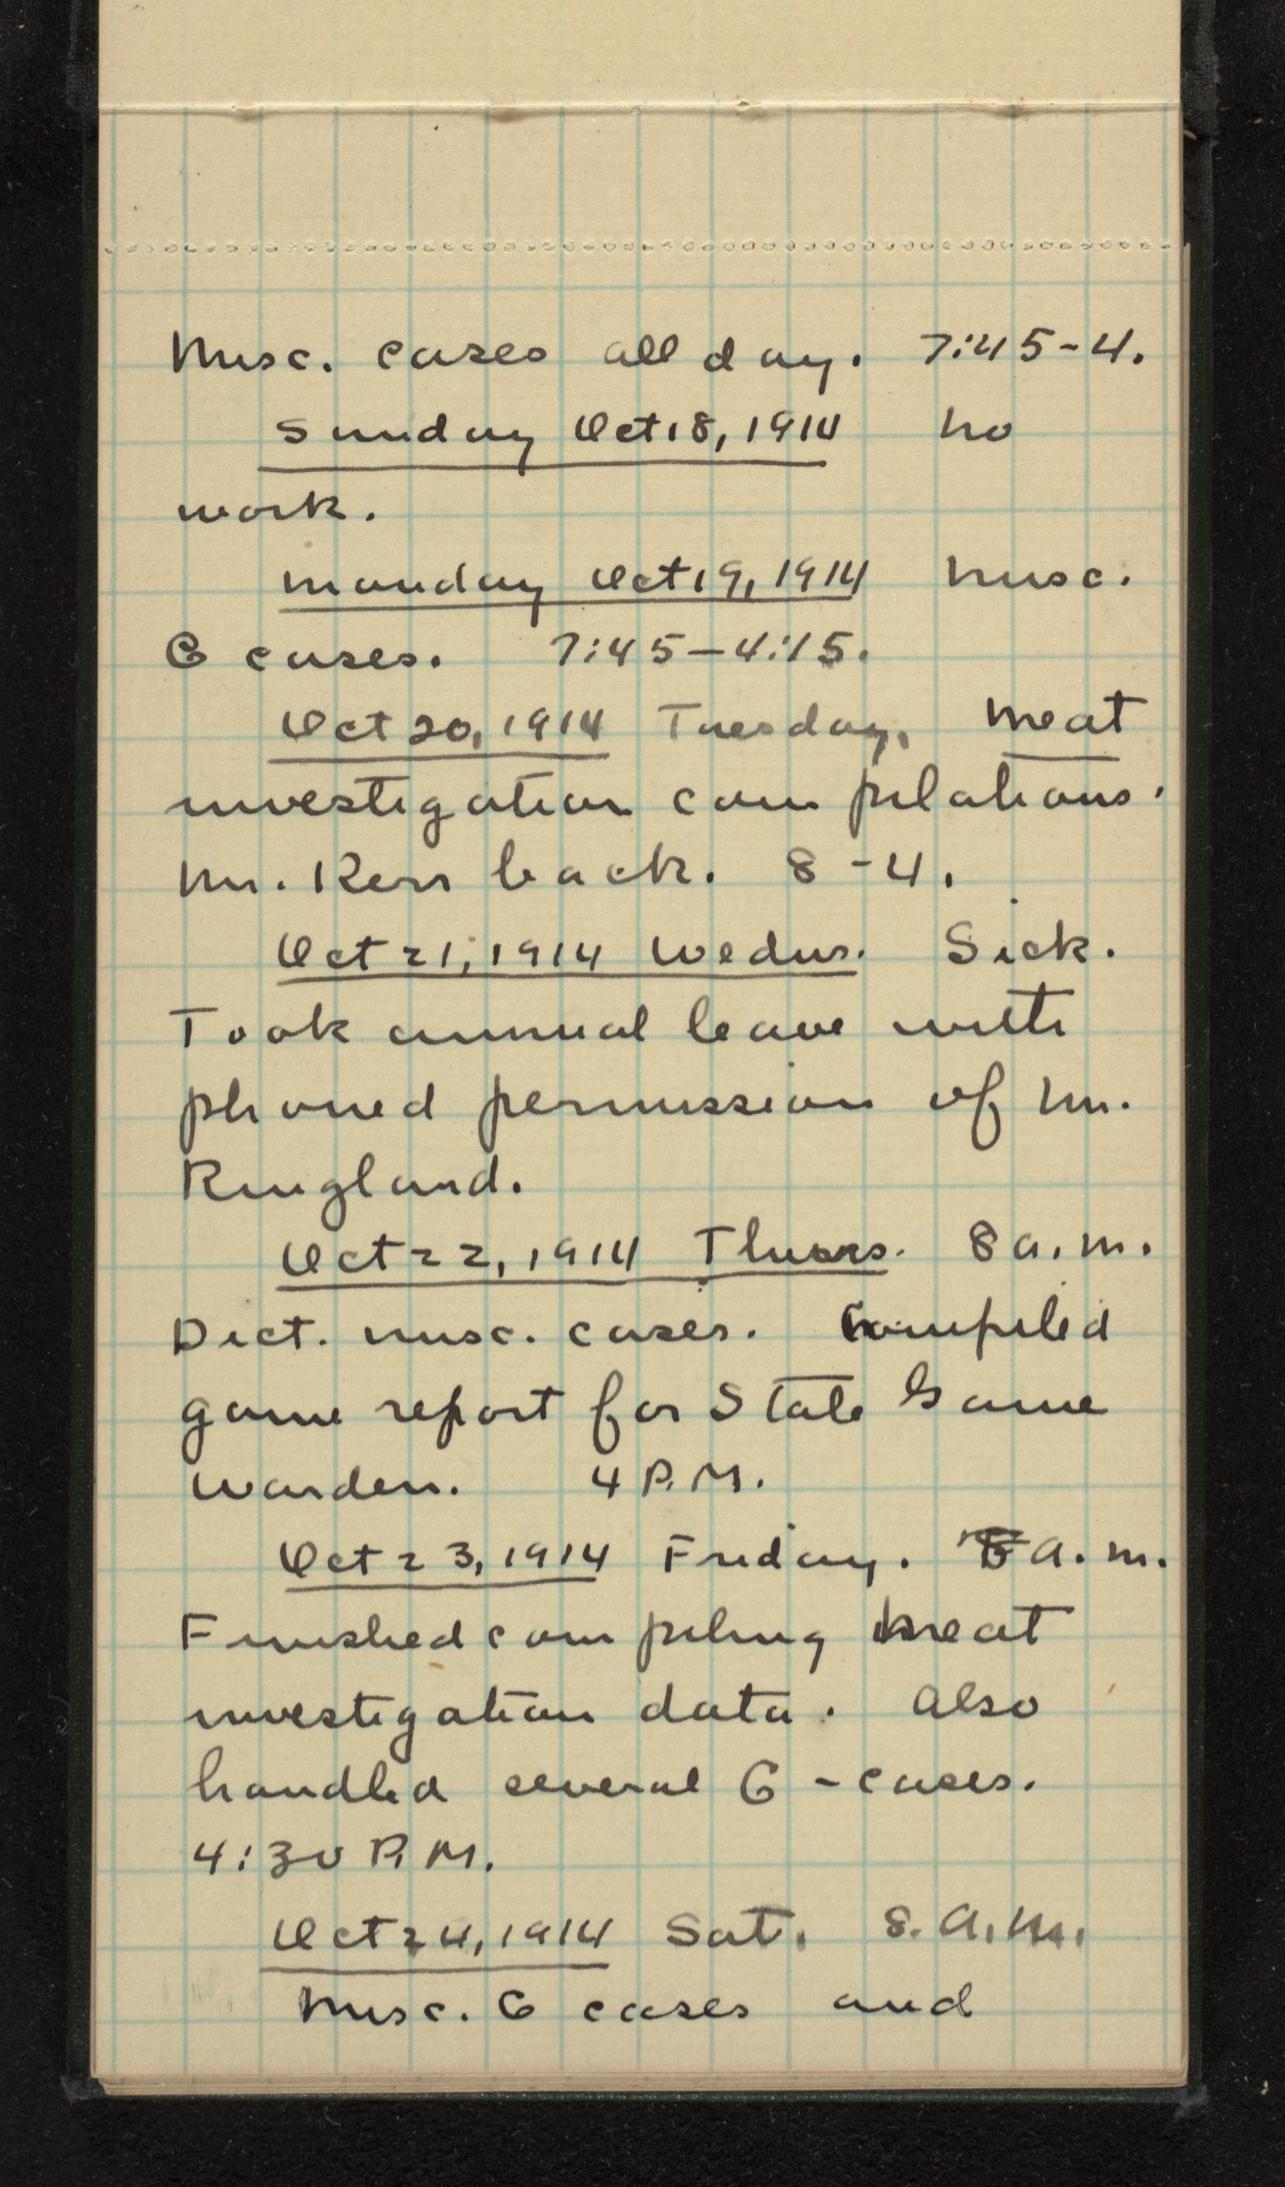 Misc. cases all day. 7:45-4.
Sunday Oct 18, 1914 No
work.
Monday Oct 19, 1914 Misc.
G cases. 7:45-4:15.
Oct 20, 1914 Tuesday. Meat
investigation compilations.
Mr. Kerr back. 8-4.
Oct 21, 1914 Wednes. Sick.
Took annual leave with
phoned permission of Mr.
Ringland.
Oct 22, 1914 Thurs. 8 a.m.
Dict. misc. cases. Compiled
game report for State Game
Warden. 4 P.M.
Oct 23, 1914 Friday. a.m.
Finished compiling meat
investigation data. Also
handled several G-cases.
4:30 P.M.
Oct 24, 1914 Sat. 8. A.M.
Misc. G cases and